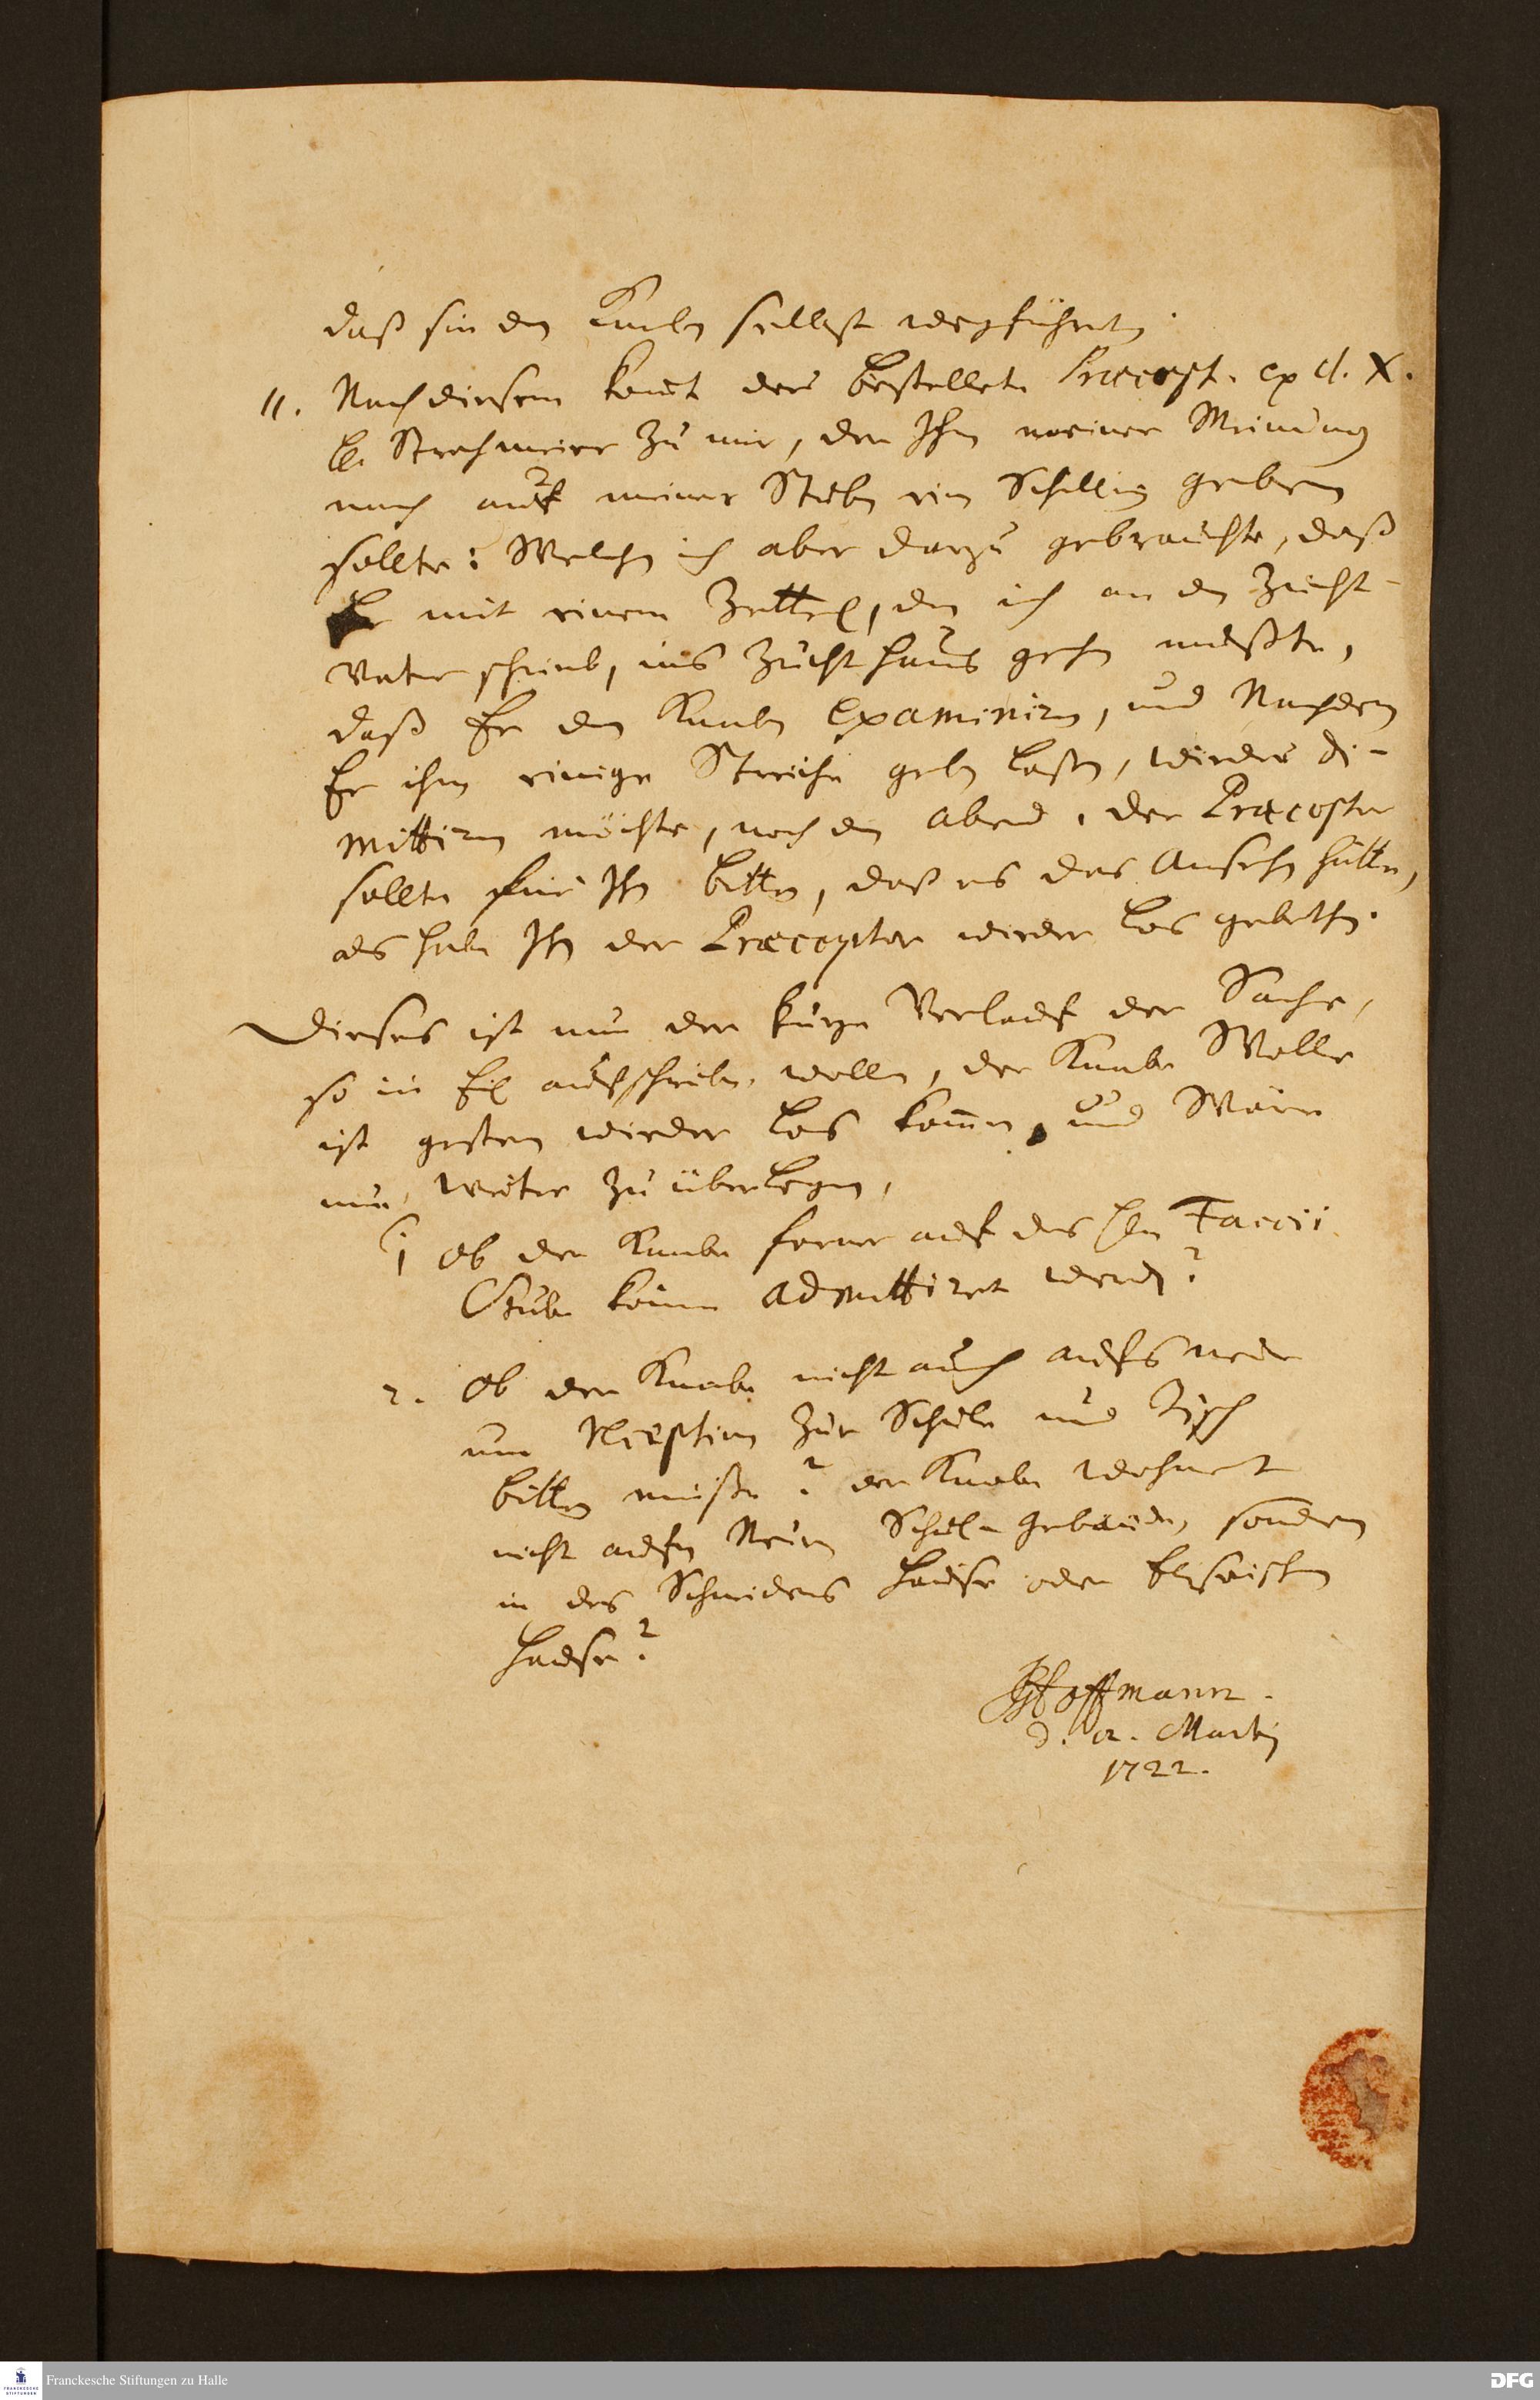 daß sie den Knaben selbst wegführeten.
11. Nach diesem komt der bestellete Præcept. ex cl. X.
H. Strohmeier zu mir, der Ihm meiner Meinung
nach auf meiner Stuben ein Schilling geben
sollte: Welchen ich aber darzu gebrauchte, daß
Er mit einem Zettel, den ich an den Zucht-
Vater schrieb, ins Zuchthaus gehen mußte,
daß Er den Knaben Examiniren, und Nachdem
Er ihm einige Streiche geben laßen, wieder di-
mittiren möchte, noch den Abend. der Præceptor
sollte für Ihn bitten, daß es das Ansehn hätte,
als habe Ihn der Præceptor wieder los gebethen.
Dieses ist nun der kurze Verlauf der Sache,
so in Eil aufschreiben wollen, der Knabe Wolle
ist gestern wieder los kommen, und Wäre
nun weiter zu überlegen,
1 Ob der Knabe ferner auf des HEn Faccii
Stube könne admittiret werden?
2. Ob der Knabe nicht auch aufs neue
um Reception zur Schule und Tisch
bitten müße? der Knabe wohnet
nicht aufm Neuen Schul-Gebäude, sondern
in des Schneiders Hause oder
Hause?
Hoffmann.
d. 12. Martij
1722.
Franckesche Stiftungen zu Halle
DFG